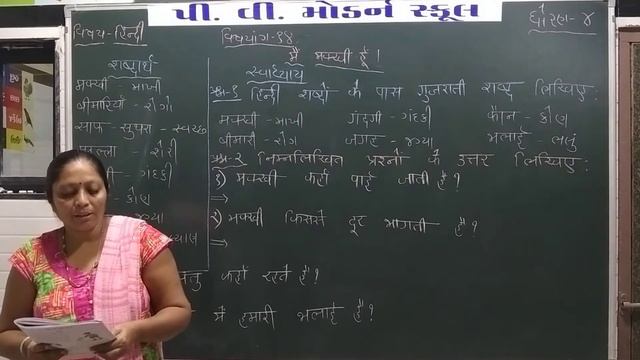 પી. વી. મોડર્ન સ્કૂલ
ધોરણ - ૪
विषय - हिन्दी
विषयांग - १४
मैं मक्खी हूँ।
शब्दार्थ
मक्खी - માખી
बीमारियाँ - રોગો
साफ - सुथरा - સ્વચ્છ
- શેરી
- ગંદકી
- કોણ
- જગ્યા
स्वाध्याय
प्रश्न-१ हिन्दी शब्दों के पास गुजराती शब्द लिखिए:
मक्खी - માખી गंदगी - ગંદકી कौन - કોણ
बीमारी - રોગ जगह - જગ્યા भलाई - ભલું
प्रश्न-२ निम्नलिखित प्रश्नों के उत्तर लिखिए:
१) मक्खी कहाँ पाई जाती है?
⇒
२) मक्खी किससे दूर भागती है?
⇒
कहाँ रहते हैं?
में हमारी भलाई है?